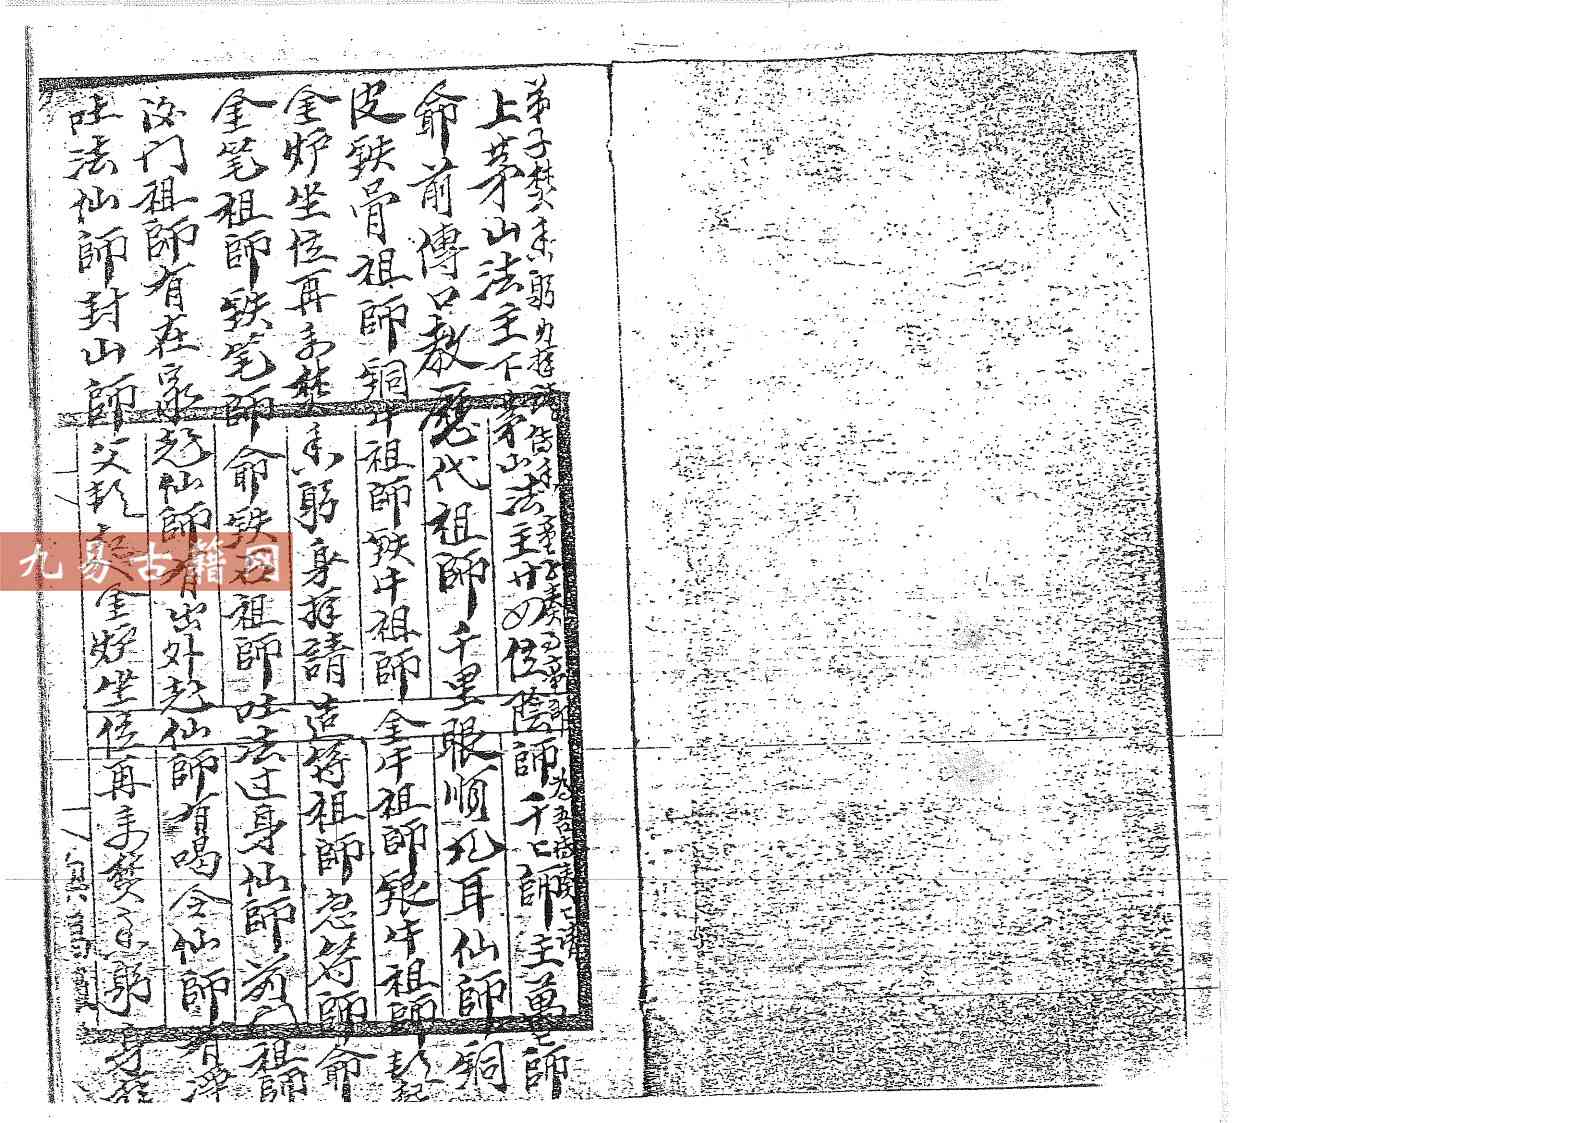 弟子焚香躬身拜請傳香童子奏事童郎為吾傳奏一請
上茅山法主下茅山法主廿四位陰師千千師主萬萬師
爺前傳口教歷代祖師千里眼順風耳仙師銅
皮鉄骨祖師銅牛祖師鉄牛祖師金牛祖師銀牛祖師彭起
金炉坐位再来焚香躬身拜請造符祖師急符師爺
金笔祖師鉄笔師爺鉄石祖師吐法过身仙師祖師
沙門祖師有在家尨仙師有出外尨仙師有喝令仙師有
吐法仙師封山師父彭起金炉坐位再来焚香躬身拜
九易古籍网